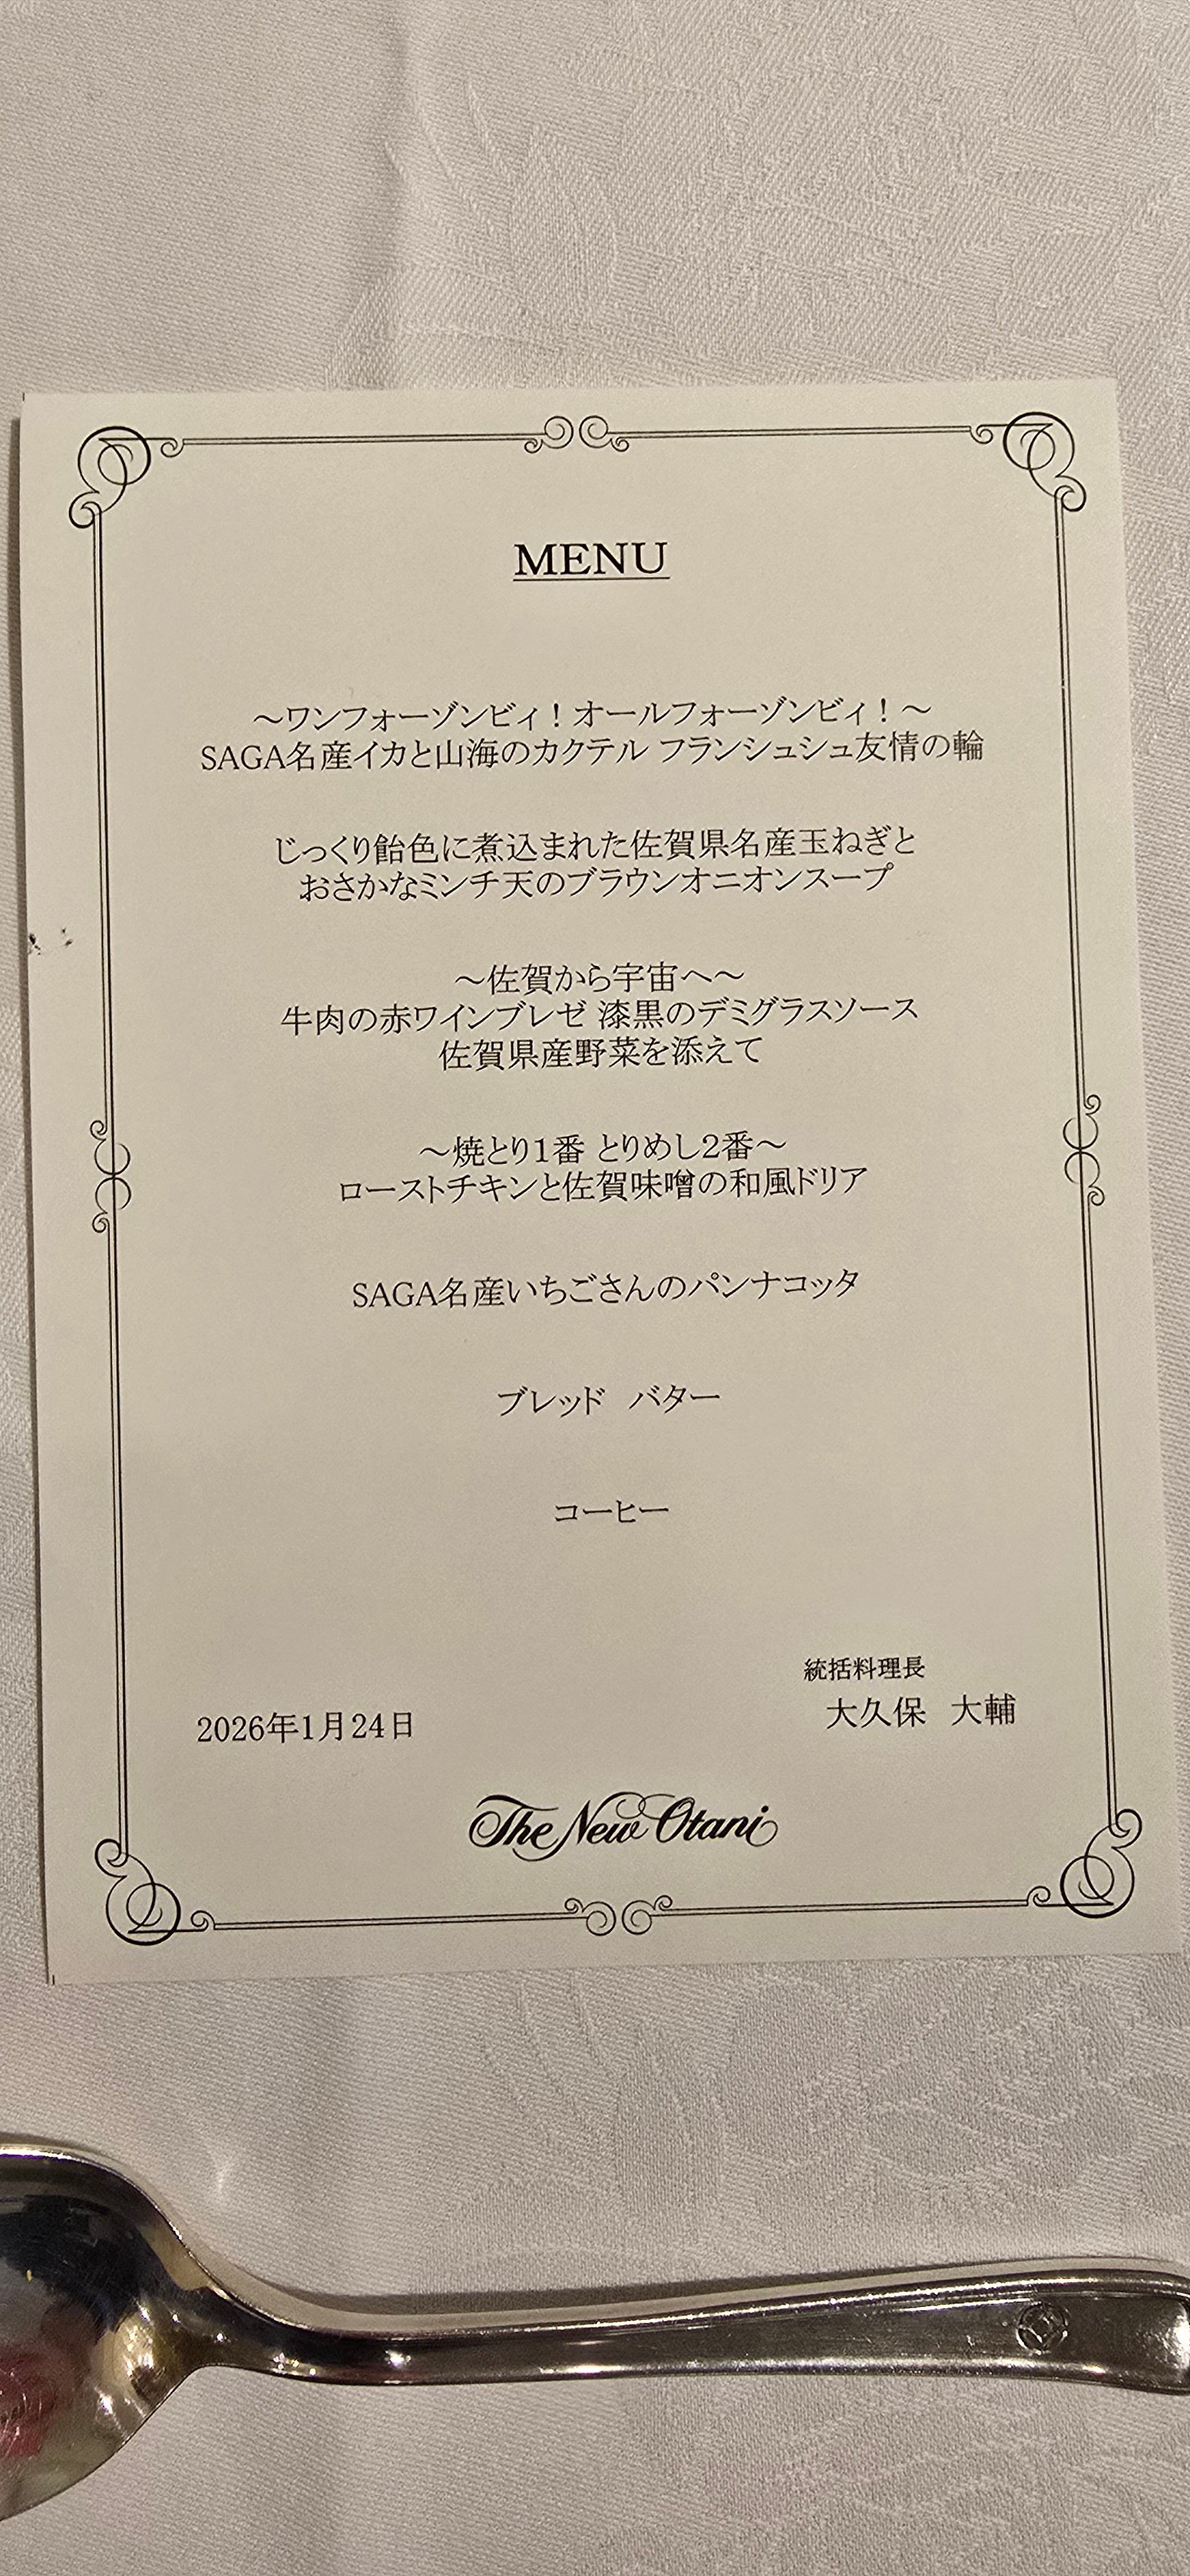 MENU
～ワンフォーゾンビィ！オールフォーゾンビィ！～
SAGA名産イカと山海のカクテル フランシュシュ友情の輪
じっくり飴色に煮込まれた佐賀県名産玉ねぎと
おさかなミンチ天のブラウンオニオンスープ
～佐賀から宇宙へ～
牛肉の赤ワインブレゼ 漆黒のデミグラスソース
佐賀県産野菜を添えて
～焼とり1番 とりめし2番～
ローストチキンと佐賀味噌の和風ドリア
SAGA名産いちごさんのパンナコッタ
ブレッド　バター
コーヒー
統括料理長
大久保　大輔
2026年1月24日
The New Otani